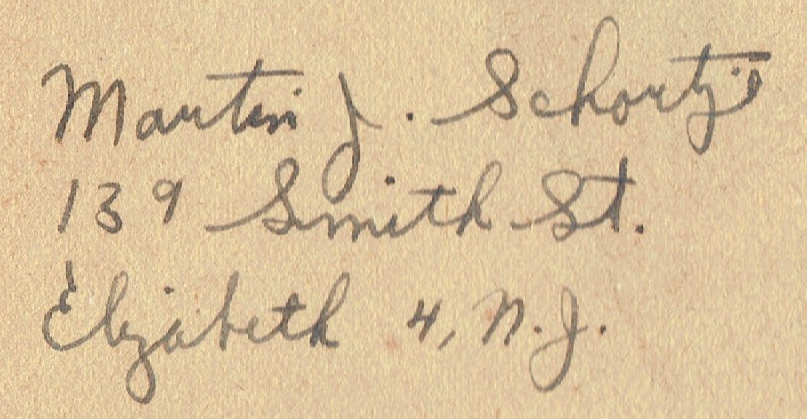 Martin J. Schortje
139 Smith St.
Elizabeth 4, N.J.